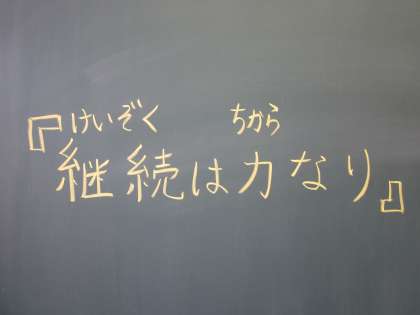 けいぞく ちから
『継続は力なり』